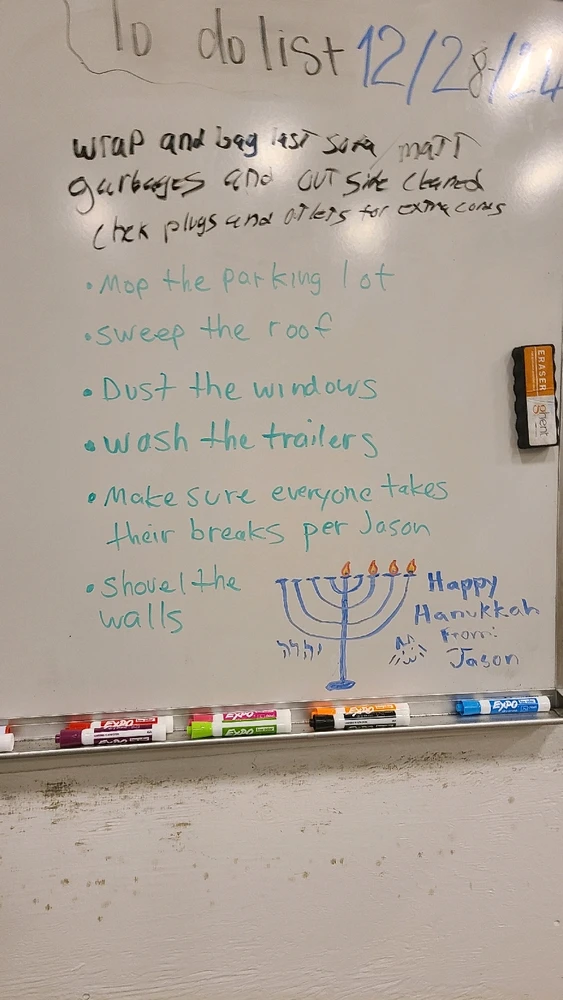 To do list 12/28/24
wrap and bag last sofa matt
garbages and out side cleaned
chek plugs and otlets for extra cords
• Mop the parking lot
• sweep the roof
• Dust the windows
• wash the trailers
• Make sure everyone takes
their breaks per Jason
• Shovel the
walls
Happy
Hanukkah
From:
Jason
ERASER
EXPO
EXPO
EXPO
EXPO
EXPO
EXPO